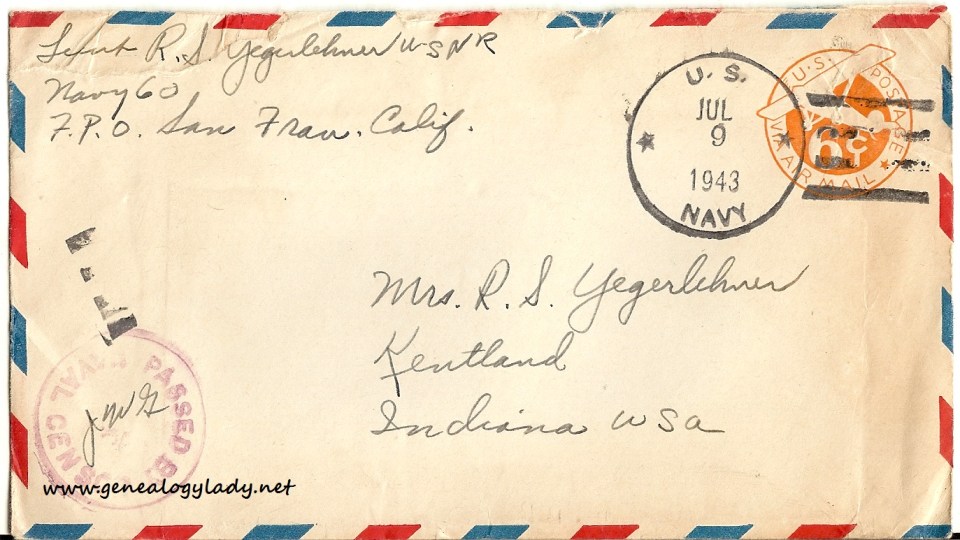 Lieut R. S. Yegerlehner USNR
Navy 60
F.P.O. San Fran. Calif.
U. S.
JUL
9
1943
NAVY
U.S. POSTAGE
6c
VIA AIR MAIL
Mrs. R. S. Yegerlehner
Kentland
Indiana USA
PASSED BY
NAVAL CENSOR
JWG
www.genealogylady.net